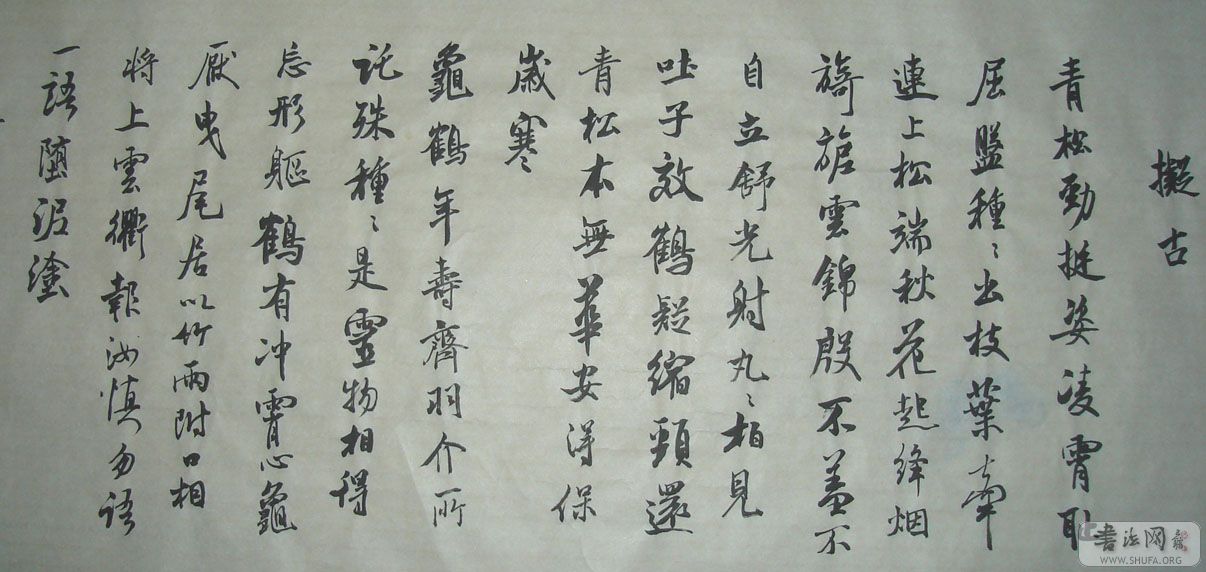 擬古
青松勁挺姿凌霄耻
屈盤種〻出枝葉牽
連上松端秋花起絳烟
旖旎雲錦殷不羞不
自立舒光射丸〻柏見
吐子效鶴疑縮頸還
青松本無華安得保
歲寒
龜鶴年壽齊羽介所
託殊種〻是靈物相得
忘形軀鶴有沖霄心龜
厭曳尾居以竹兩附口相
將上雲衢報汝慎勿語
一語墮泥塗
書法网
WWW.SHUFA.ORG